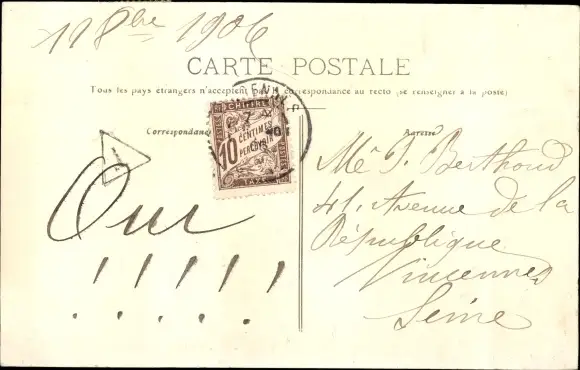 11 8bre 1906
CARTE POSTALE
Tous les pays étrangers n'acceptent pas la correspondance au recto (se renseigner à la poste)
Correspondance
Adresse
CHIFFRE
10
CENTIMES
A PERCEVOIR
TAXE
T
Oui
! ! ! ! !
Me J. Berthoud
41, Avenue de la
République
Vincennes
Seine